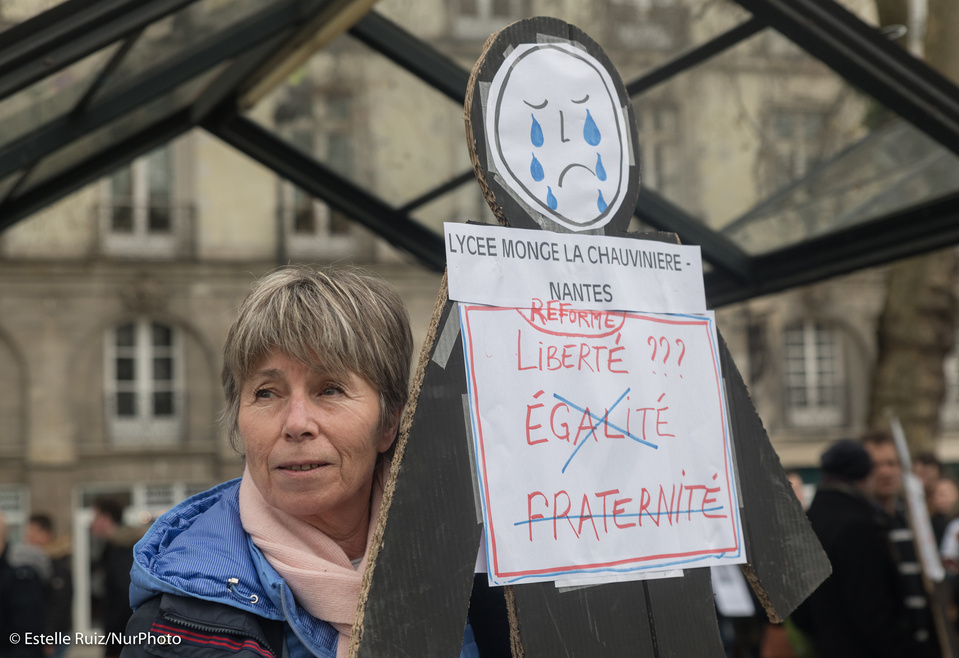 LYCEE MONGE LA CHAUVINIERE -
NANTES
RÉFORME
LIBERTÉ ???
ÉGALITÉ
FRATERNITÉ
© Estelle Ruiz/NurPhoto